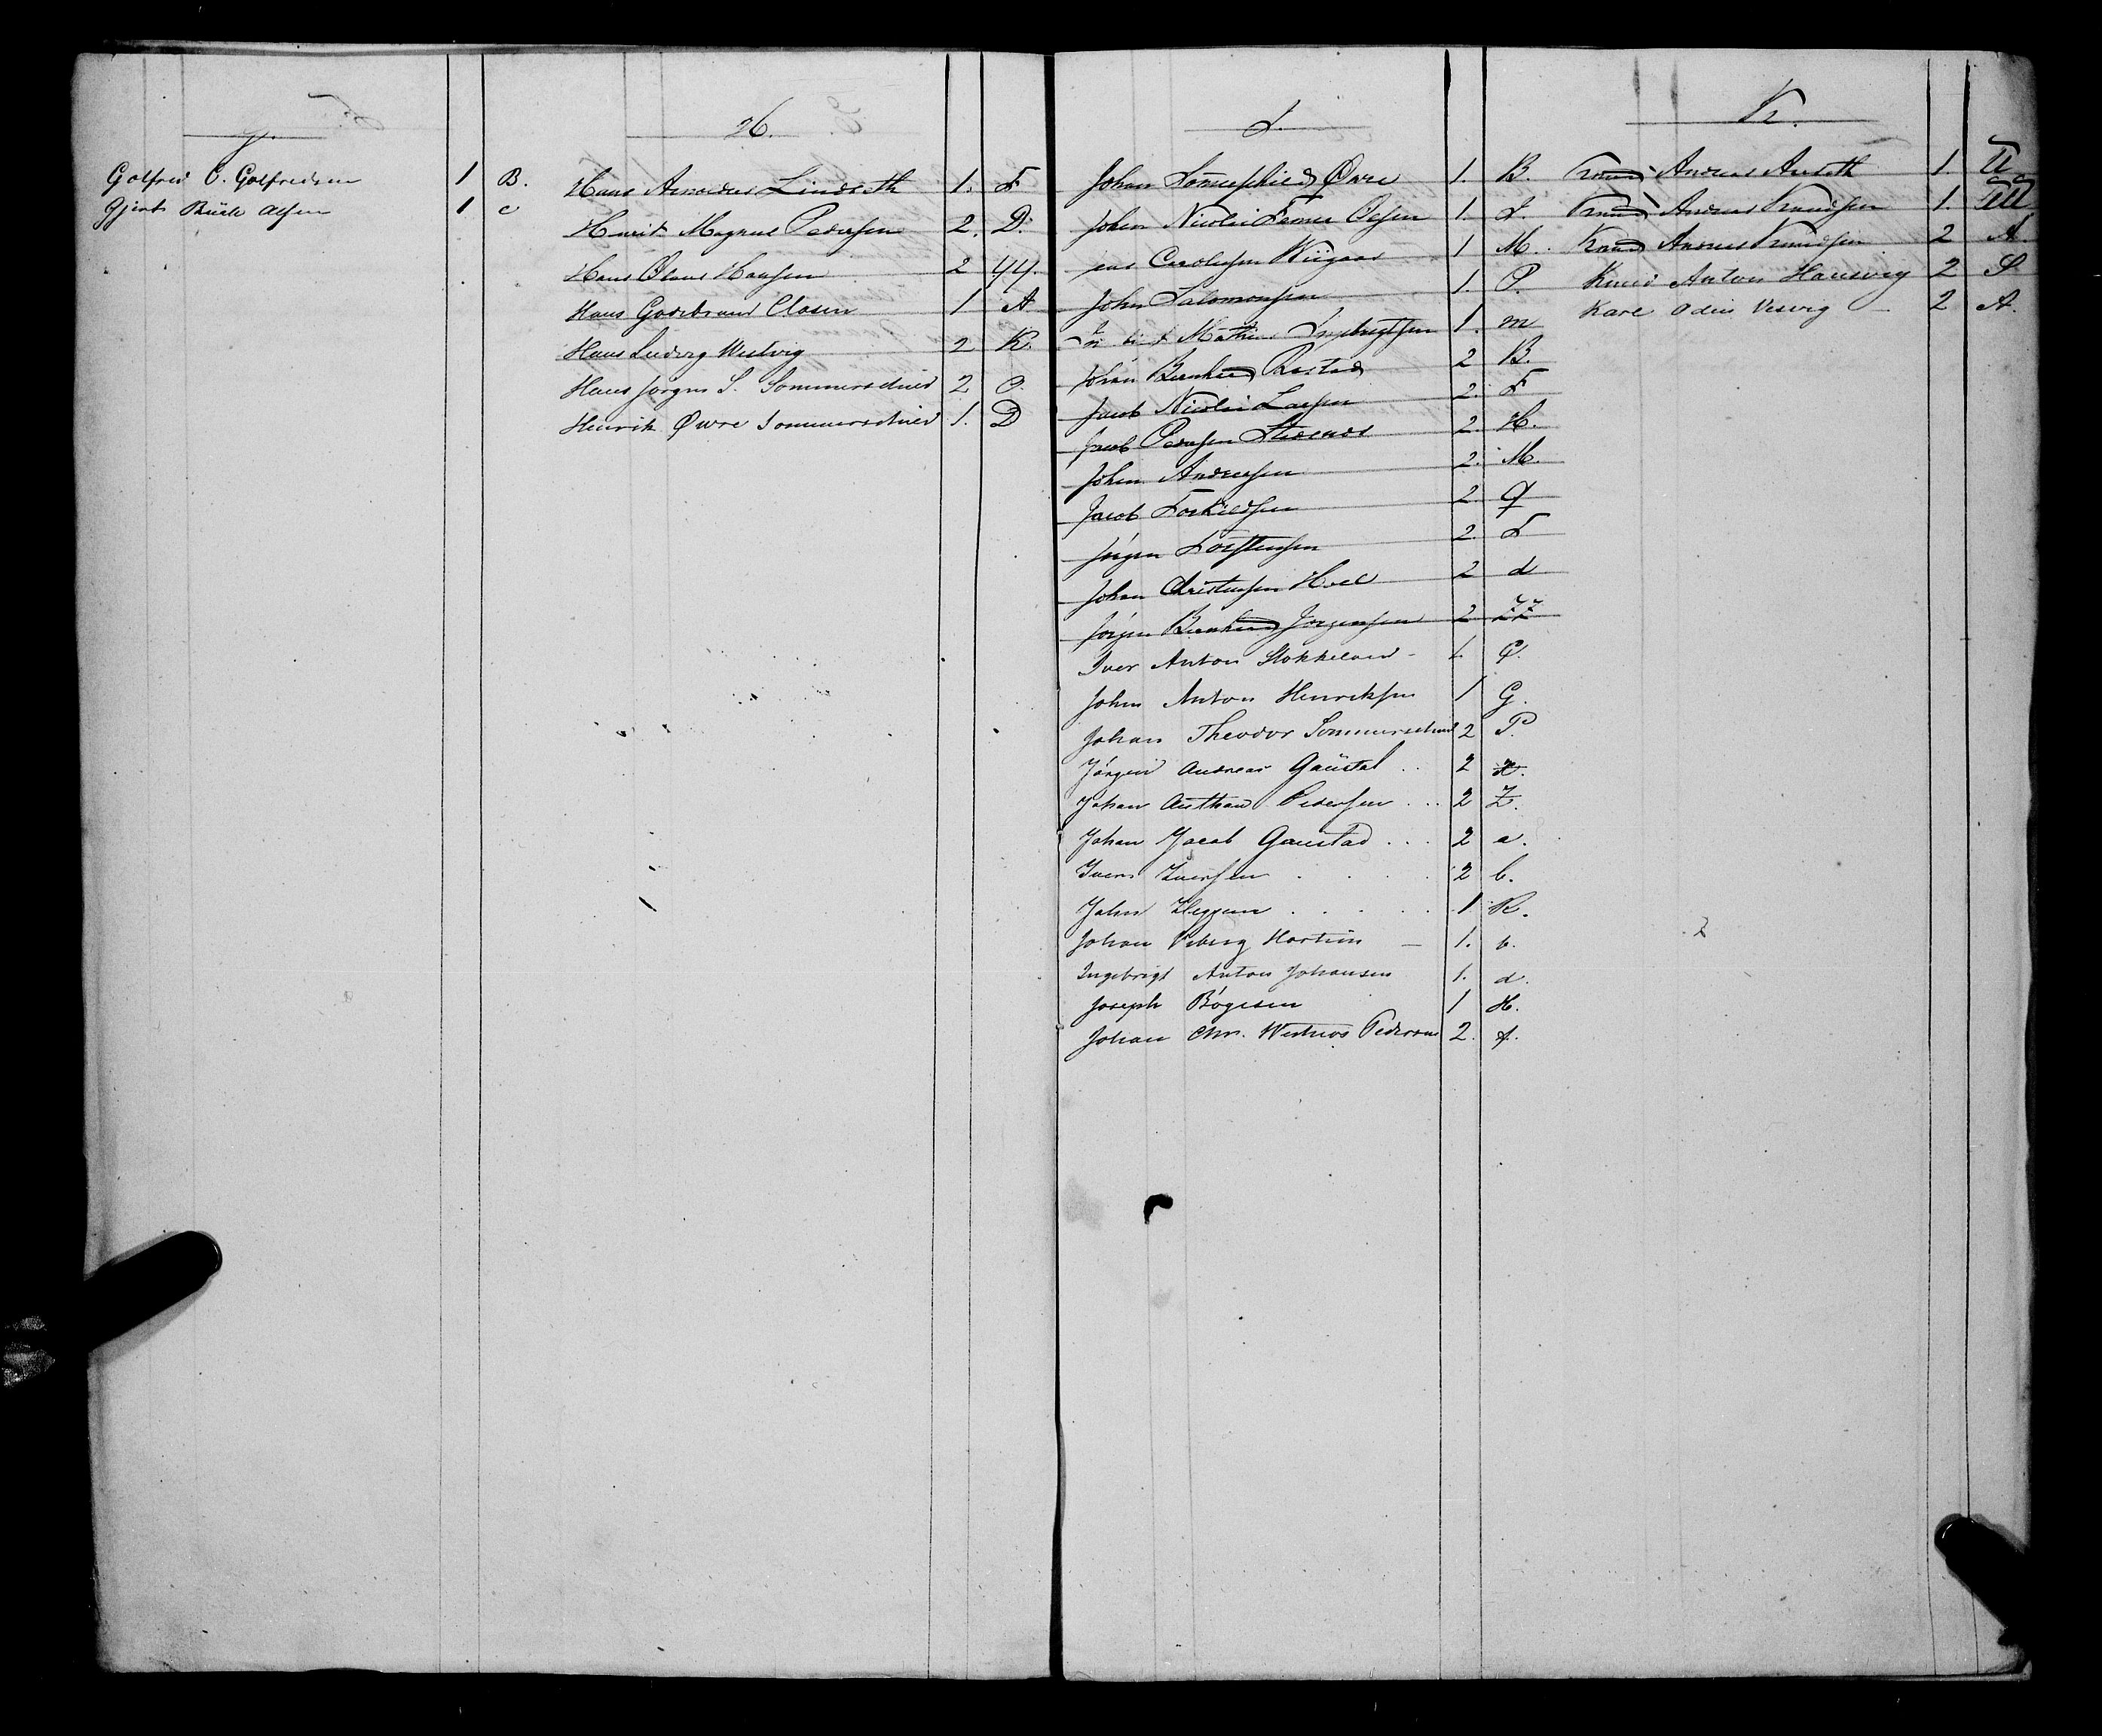 G.
Golfred O. Golfredsen 1 B.
Gjert Alsen 1 c
H.
Hans Amadeus Lindseth 1. F
Magnus Pedersen 2. D.
Hans Olaus Hansen 2 YY.
Hans Gudebrand Clasen 1 A
Hans Ludvig Westvig 2 K.
Hans Jørgen S. Sommerschield 2 O.
Henrik Øwre Sommerschield 1. D
I.
Johan Sommerschield Øwre 1. B.
Johan Nicolai Olsen 1. I.
Carolussen Wiigaas 1 M.
John Salomonsen 1. P.
Mathias Ingebrigtsen 1. m
Johan Bernhard Rastad 2 B.
Jacob Nicolai Larsen 2. F
Jacob Pedersen 2. H.
Johan Andersen 2. M.
Jacob Torkildsen 2 Q
Jørgen Torstensen 2. F
Johan Christensen Hoel 2 d
Jørgen Bernhard Jørgensen 2 ZZ
Iver Anton Stokkeland 1 Q.
Johan Anton Henriksen 1 G.
Johan Theodor Sommerschield 2 P.
Jørgen Andreas Gaustad .. 2 X.
Johan Authan Pedersen ... 2 Z.
Johan Jacob Gaustad ... 2 a.
Ivers Iversen 2 b.
John Heggem 1 R.
Johan Viberg Hartvin — 1. b.
Ingebrigt Anton Johansen 1. d.
Joseph Bøgesen 1 H.
Johan Chr. Pedersen 2. f.
K.
Knud Andreas Anseth 1. U
Knud Andreas Knudsen 1. UU
Knud Andreas Knudsen 2 A.
Knud Anton Hansvig 2 S
Karl Odin Vesvig — 2 A.